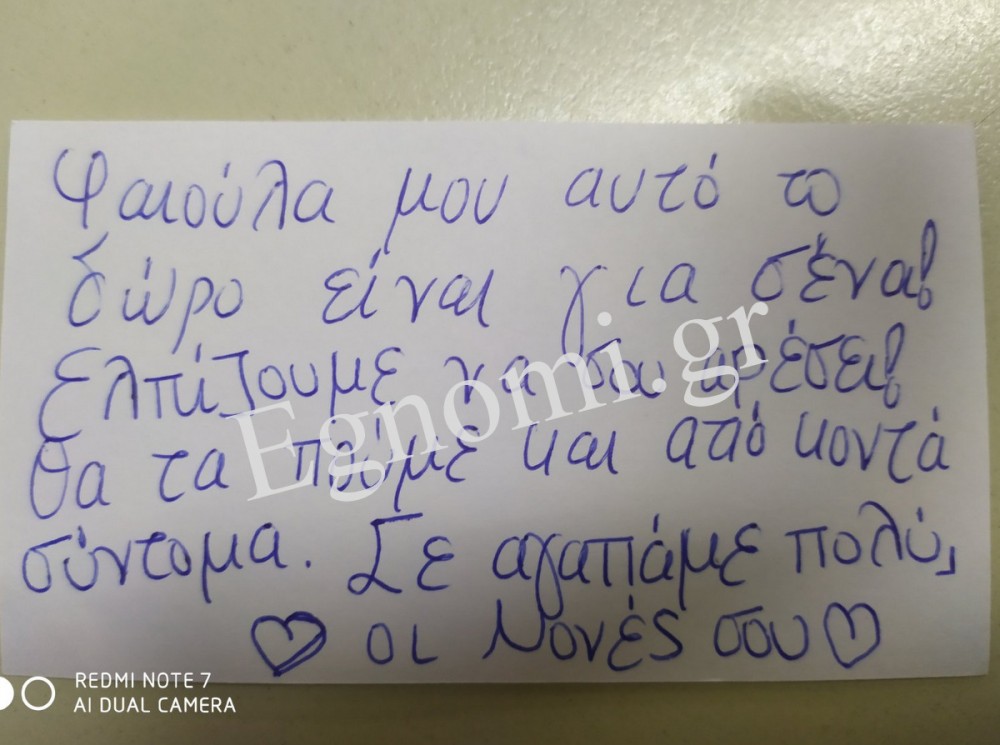 Φαιούλα μου αυτό το
δώρο είναι για σένα!
Ελπίζουμε να σου αρέσει!
Θα τα πούμε και από κοντά
σύντομα. Σε αγαπάμε πολύ,
οι Νονές σου
Egnomi.gr
REDMI NOTE 7
AI DUAL CAMERA